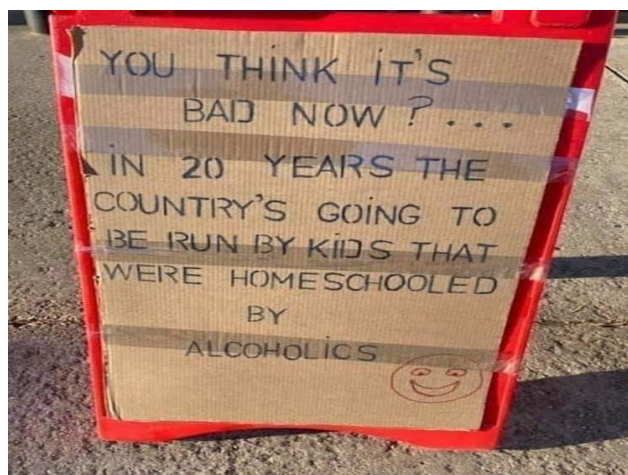 YOU THINK IT'S
BAD NOW ? ...
IN 20 YEARS THE
COUNTRY'S GOING TO
BE RUN BY KIDS THAT
WERE HOMESCHOOLED
BY
ALCOHOLICS